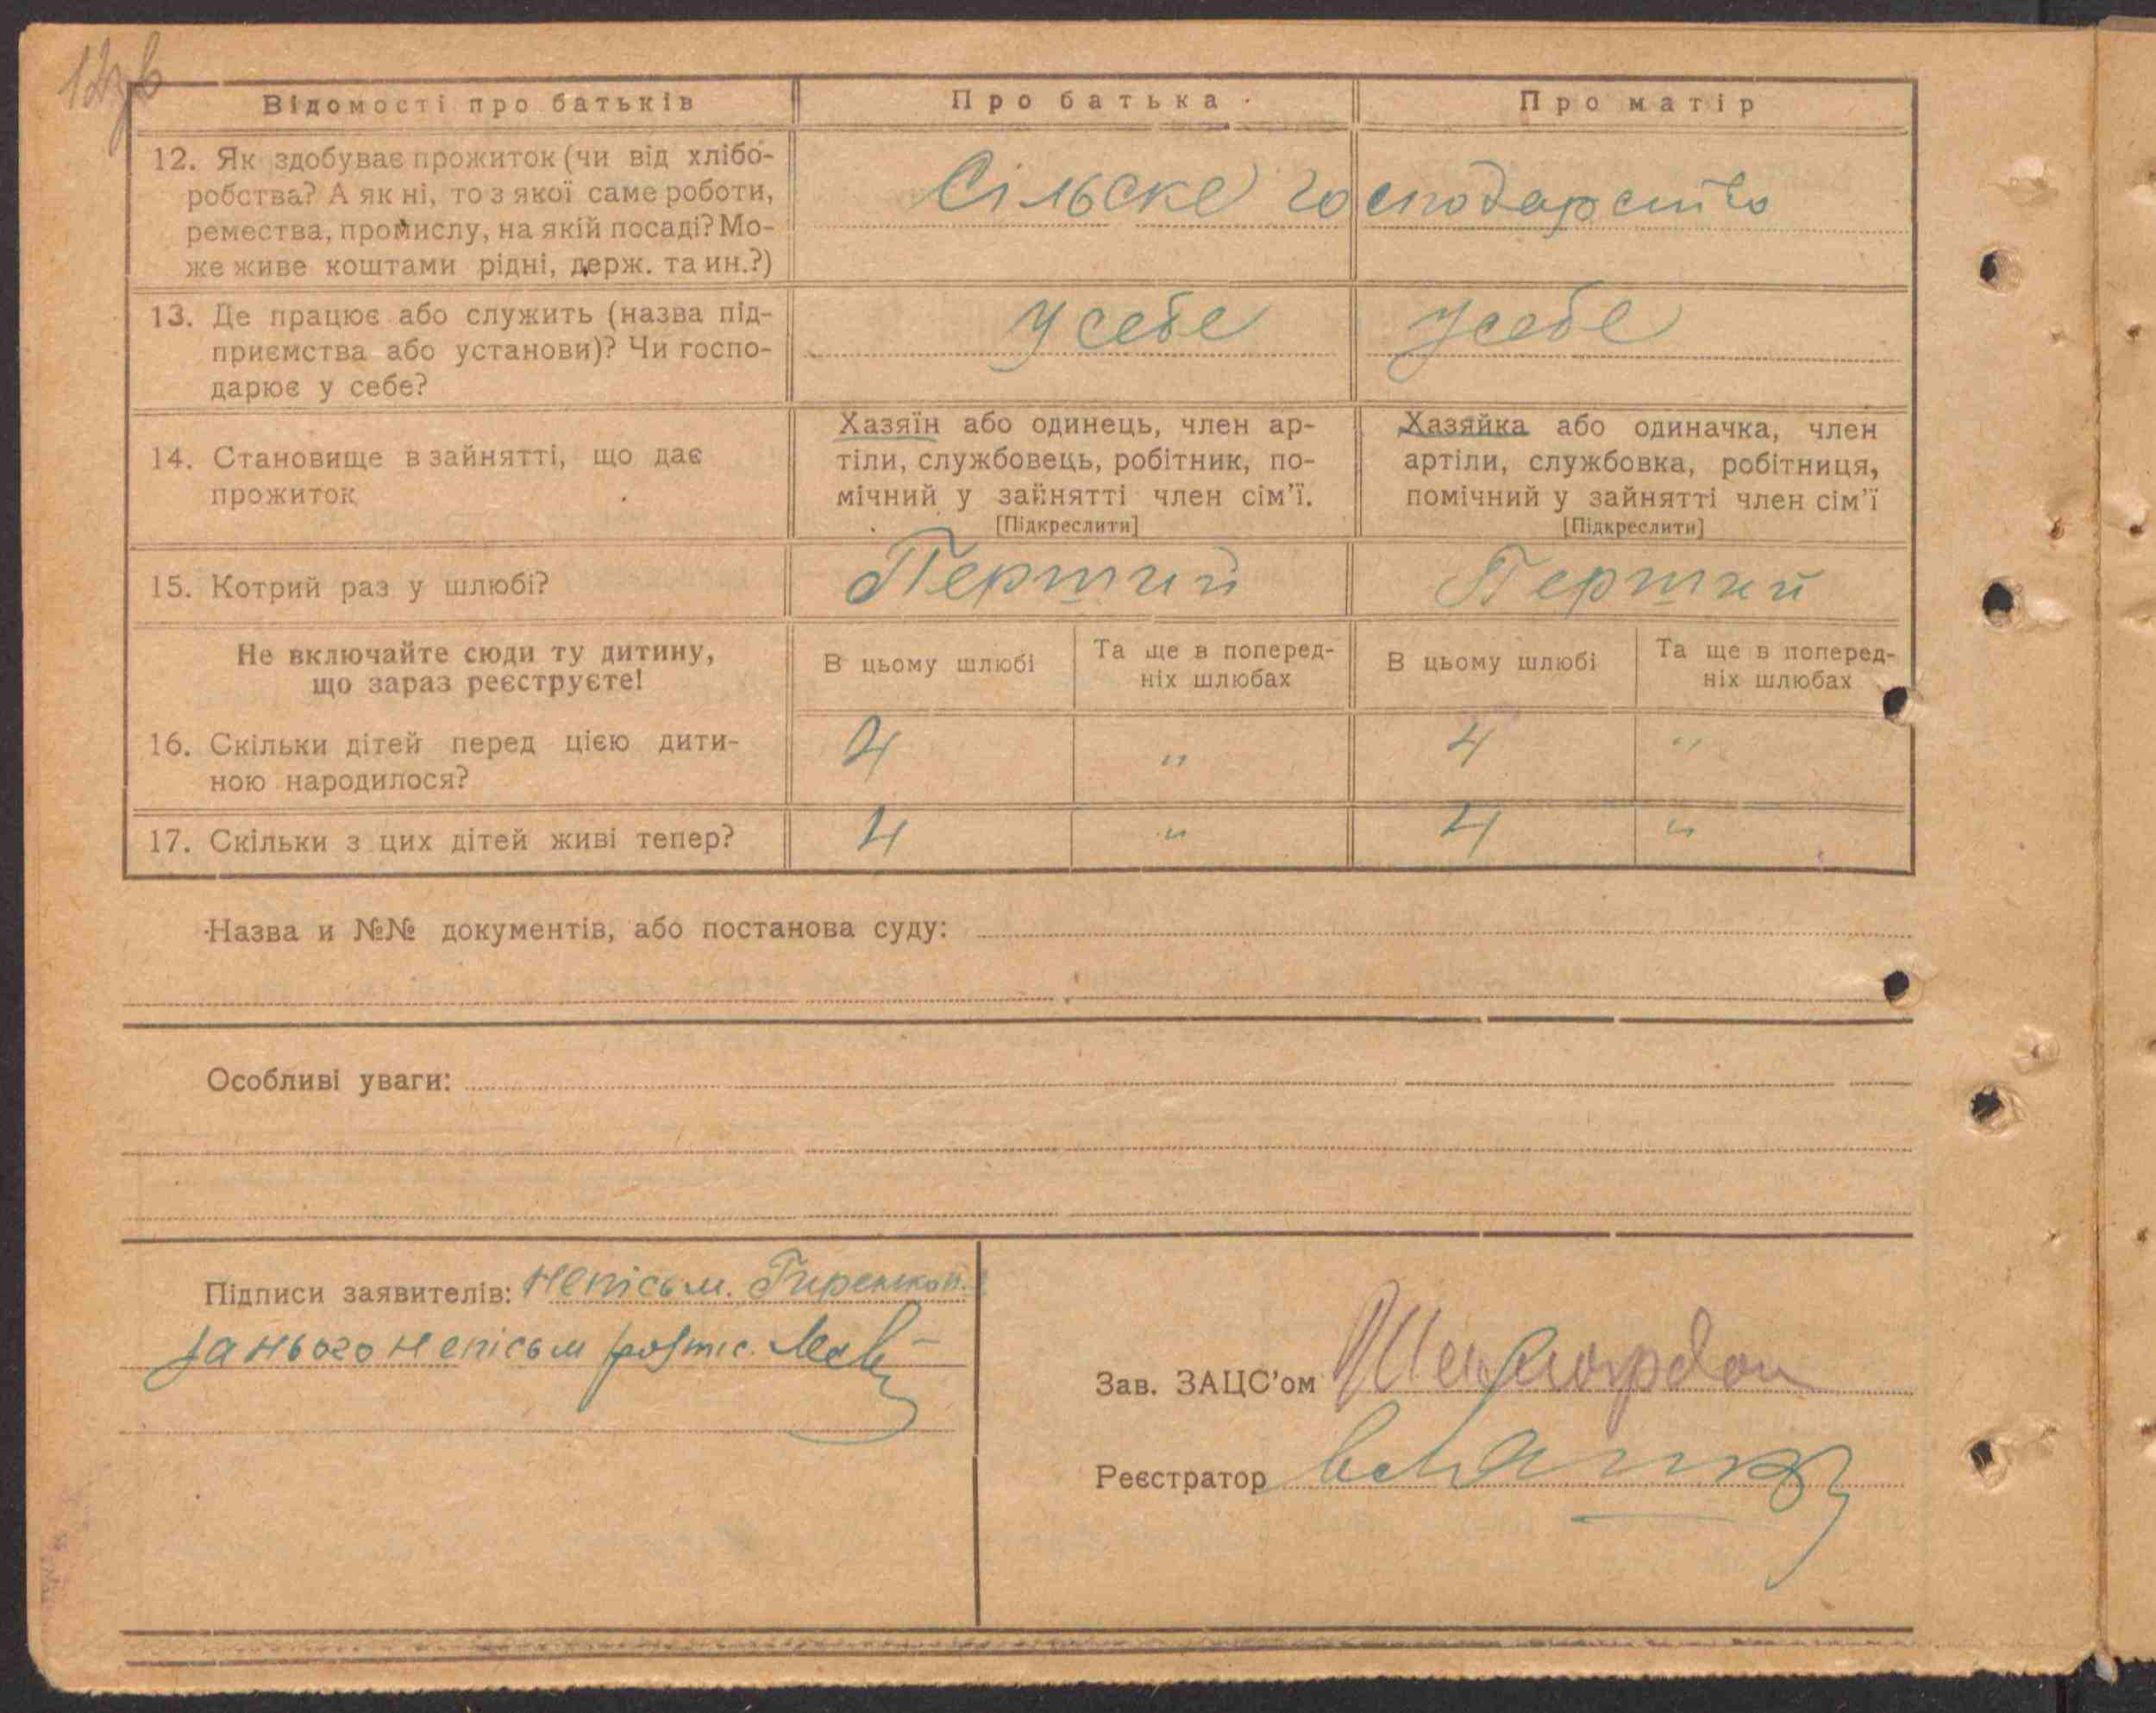 12зв
Відомості про батьків
Про батька
Про матір
12. Як здобуває прожиток (чи від хлібо-
робства? А як ні, то з якої саме роботи,
ремества, промислу, на якій посаді? Мо-
же живе коштами рідні, держ. та ин.?)
Сільске господарство
13. Де працює або служить (назва під-
приємства або установи)? Чи госпо-
дарює у себе?
У себе
У себе
14. Становище в зайнятті, що дає
прожиток
Хазяїн або одинець, член ар-
тіли, службовець, робітник, по-
мічний у зайнятті член сім'ї.
[Підкреслити]
Хазяйка або одиначка, член
артіли, службовка, робітниця,
помічний у зайнятті член сім'ї
[Підкреслити]
15. Котрий раз у шлюбі?
Перший
Перший
Не включайте сюди ту дитину,
що зараз реєструєте!
В цьому шлюбі
Та ще в поперед-
ніх шлюбах
В цьому шлюбі
Та ще в поперед-
ніх шлюбах
16. Скільки дітей перед цією дити-
ною народилося?
4 " 4 "
17. Скільки з цих дітей живі тепер?
4 " 4 "
Назва и №№ документів, або постанова суду:
Особливі уваги:
Підписи заявителів: Непісьм.
за нього непісьм розпис.
Зав. ЗАЦС'ом
Реєстратор